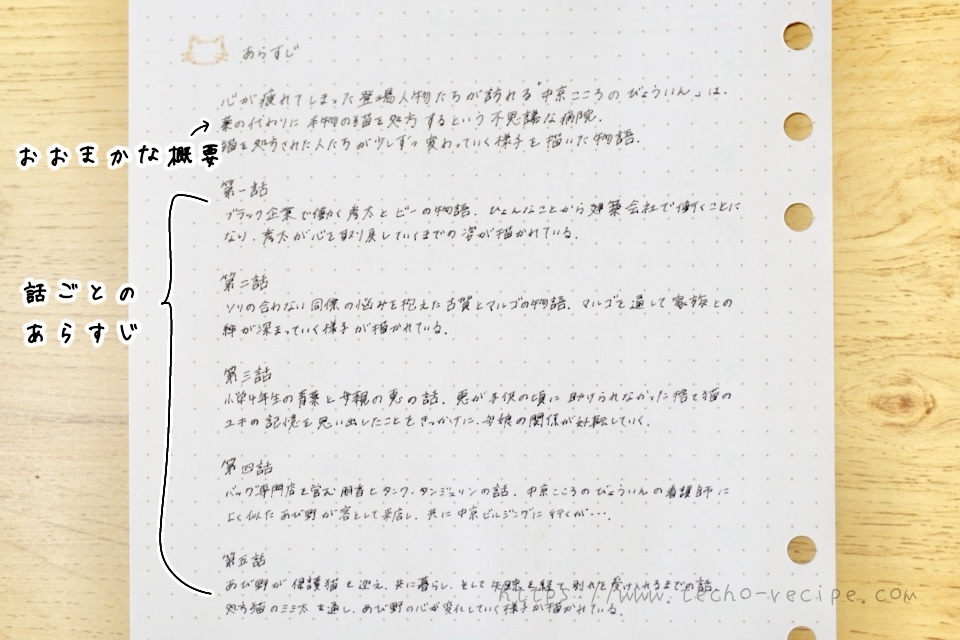 あらすじ
心が疲れてしまった登場人物たちが訪れる「中京こころのびょういん」は、
薬の代わりに本物の猫を処方するという不思議な病院。
猫を処方された人たちが少しずつ変わっていく様子を描いた物語。
おおまかな概要
話ごとの
あらすじ
第一話
ブラック企業で働く秀太とビーの物語。ひょんなことから建築会社で働くことに
なり、秀太が心を取り戻していくまでの姿が描かれている。
第二話
ソリの合わない同僚の悩みを抱えた古賀とマルゴの物語。マルゴを通して家族との
絆が深まっていく様子が描かれている。
第三話
小学4年生の青葉と母親の恵の話。恵が子供の頃に助けられなかった捨て猫の
ユキの記憶を思い出したことをきっかけに、母娘の関係が好転していく。
第四話
バッグ専門店を営む朋香とタンク・タンジェリンの話。中京こころのびょういんの看護師に
よく似たあび野が客として来店し、共に中京ビルジングに行くが…。
第五話
あび野が保護猫を迎え、共に暮らし、そして失踪を経て別れを受け入れるまでの話。
処方猫のミミ太を通し、あび野の心が変化していく様子が描かれている。
https://www.techo-recipe.com